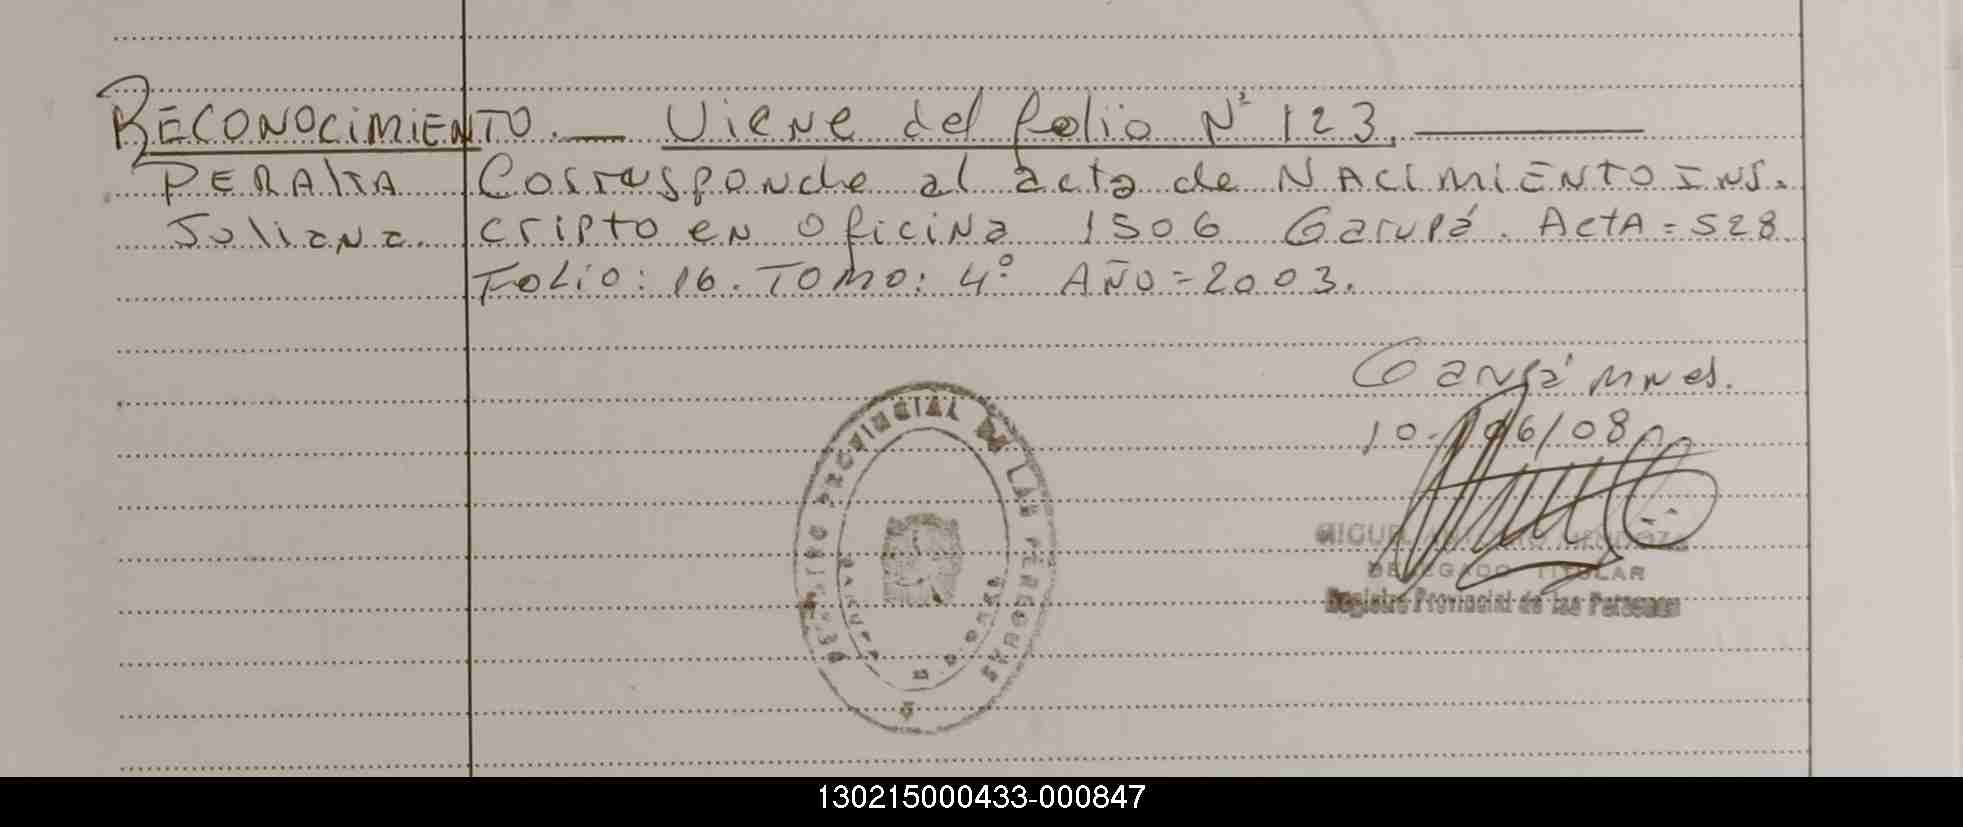 RECONOCIMIENTO. — Viene del folio Nº 123. —
PERALTA Corresponde al acta de NACIMIENTO INS.
Juliana cripto en oficina 1506 Garupá. ActA = 528
Folio: 16. TOMO: 4º AÑO = 2003.
Garupá Mnes.
10-06/08
REGISTRO PROVINCIAL DE LAS PERSONAS
MIGUEL ANTONIO MENDOZA
DELEGADO TITULAR
Registro Provincial de las Personas
130215000433-000847